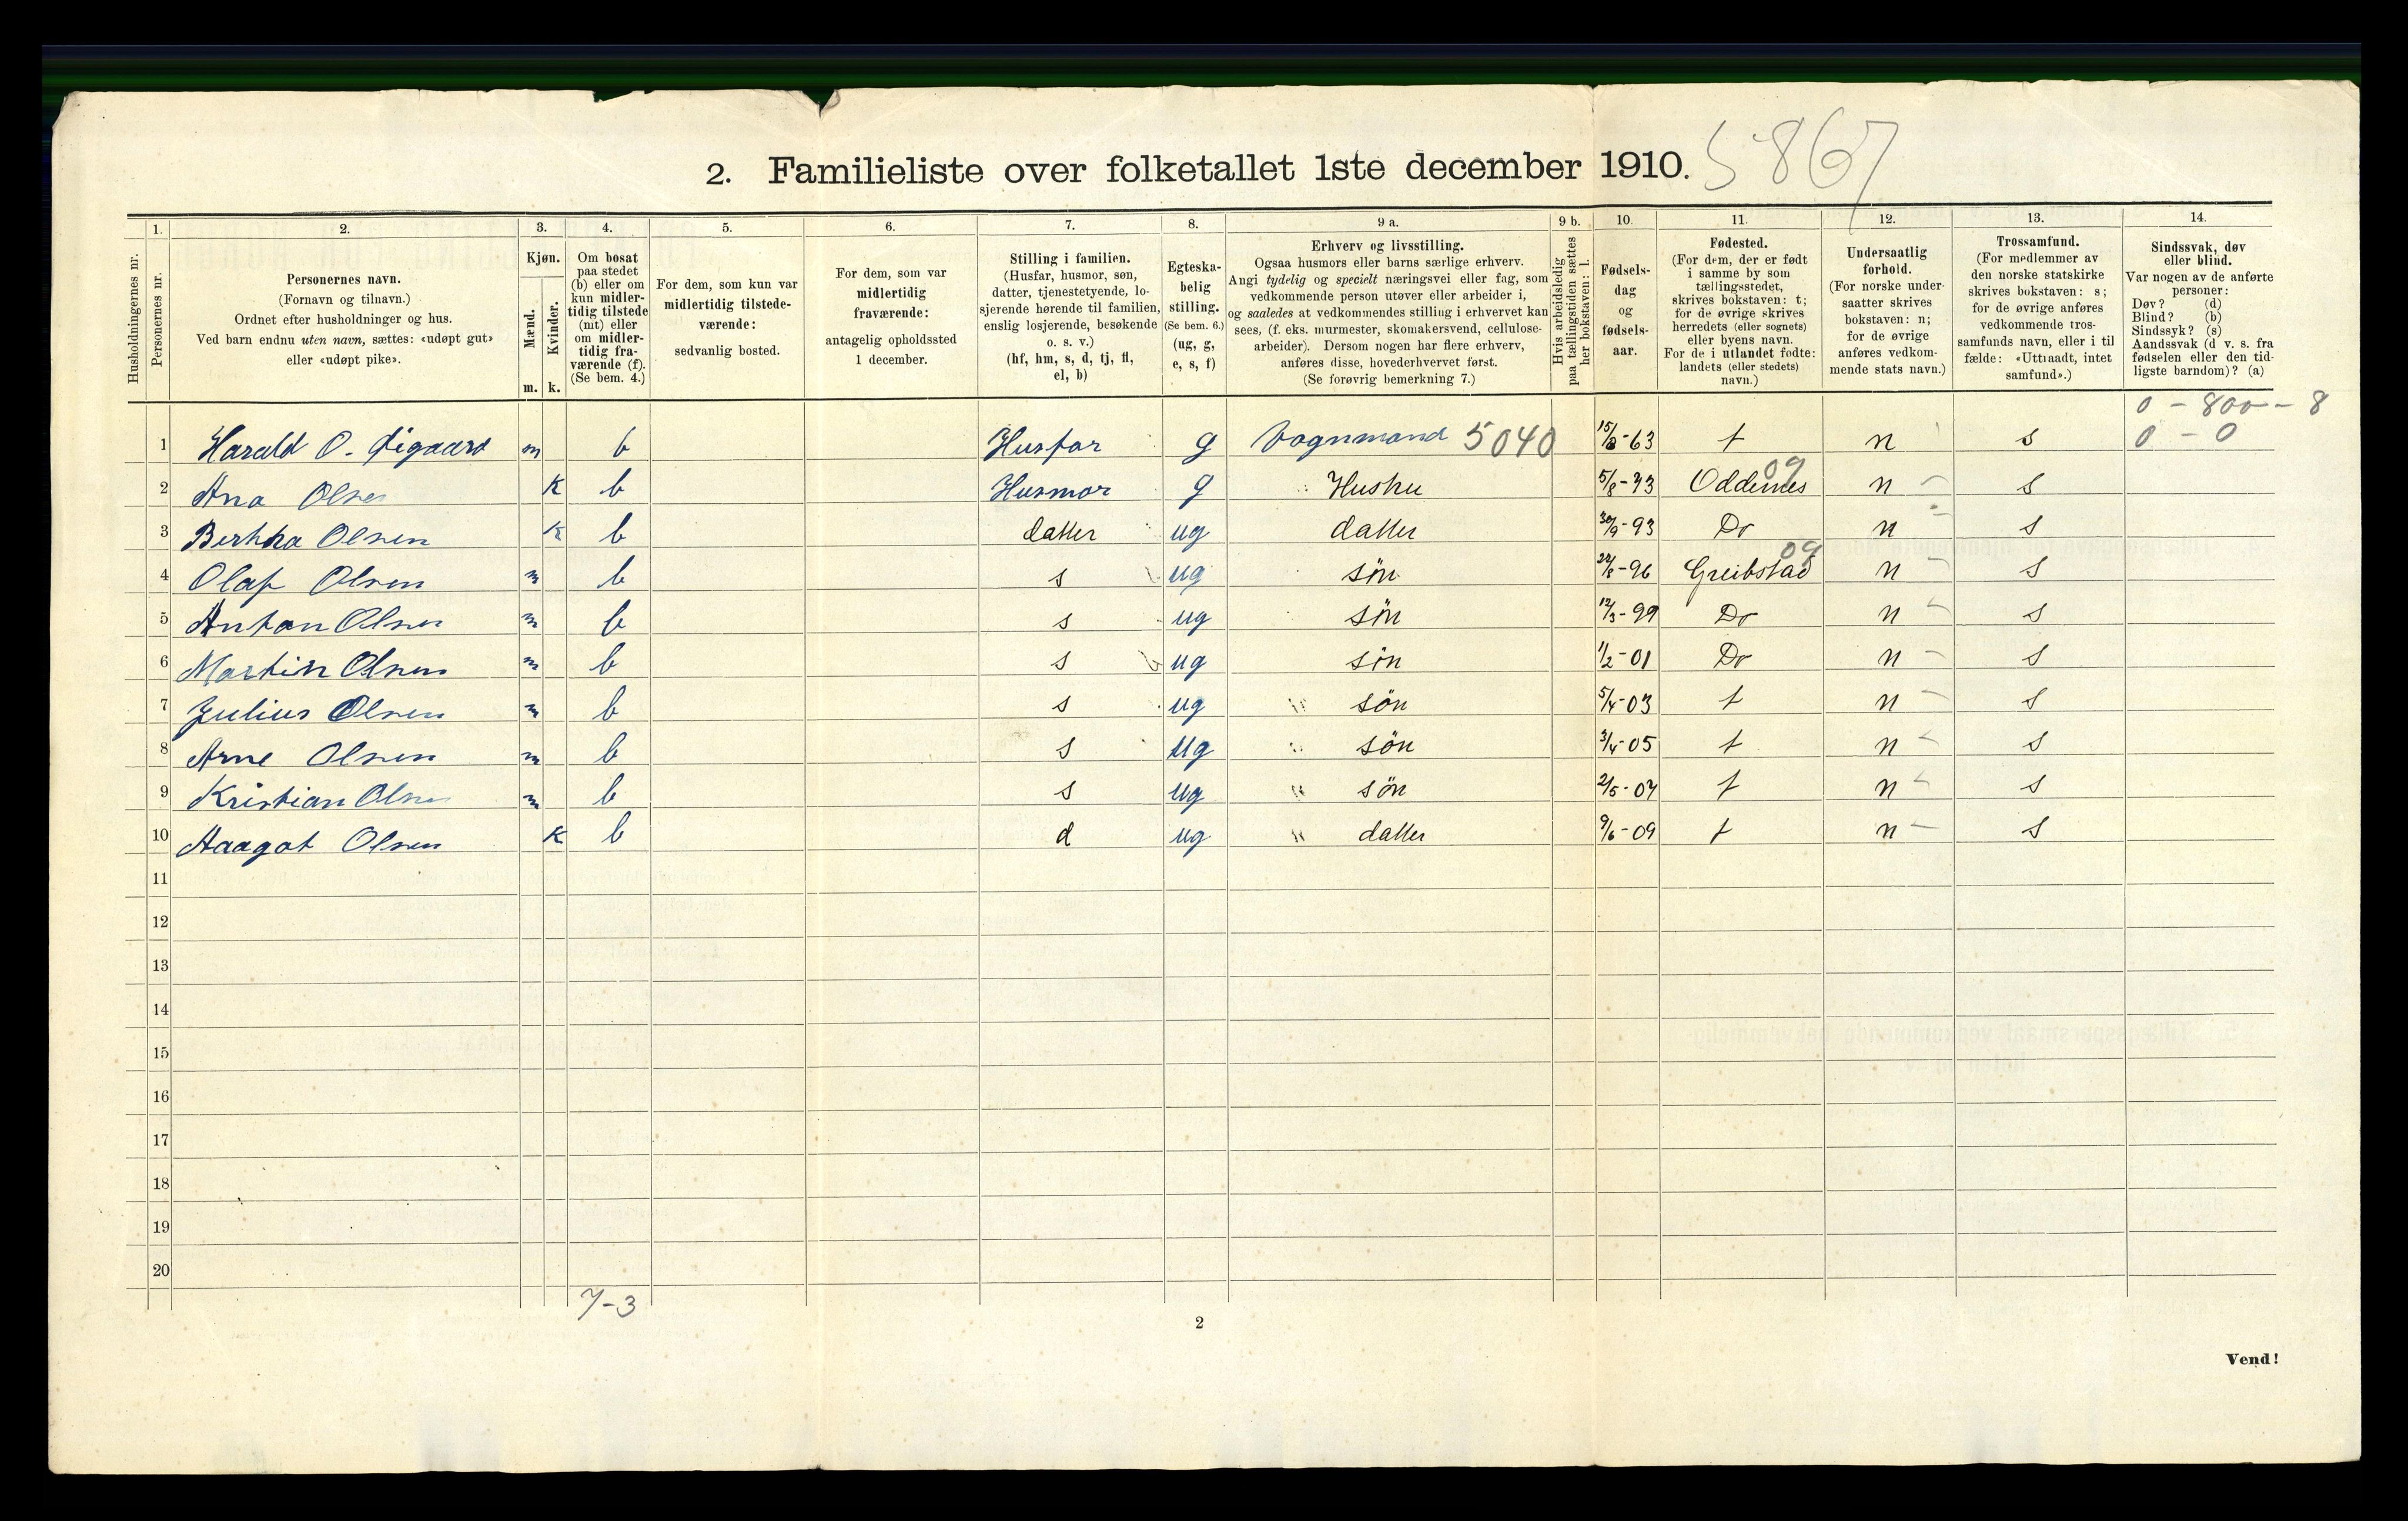 2. Familieliste over folketallet 1ste december 1910.
5867
Husholdningernes nr.
1.
Personernes nr.
2.
Personernes navn.
(Fornavn og tilnavn.)
Ordnet efter husholdninger og hus.
Ved barn endnu uten navn, sættes: «udøpt gut»
eller «udøpt pike».
3.
Kjøn.
Mænd.
Kvinder.
m. k.
4.
Om bosat
paa stedet
(b) eller om
kun midler-
tidig tilstede
(mt) eller
om midler-
tidig fra-
værende (f).
(Se bem. 4.)
5.
For dem, som kun var
midlertidig tilstede-
værende:
sedvanlig bosted.
6.
For dem, som var
midlertidig
fraværende:
antagelig opholdssted
1 december.
7.
Stilling i familien.
(Husfar, husmor, søn,
datter, tjenestetyende, lo-
sjerende hørende til familien,
enslig losjerende, besøkende
o. s. v.)
(hf, hm, s, d, tj, fl,
el, b)
8.
Egteska-
belig
stilling.
(Se bem. 6.)
(ug, g,
e, s, f)
9 a.
Erhverv og livsstilling.
Ogsaa husmors eller barns særlige erhverv.
Angi tydelig og specielt næringsvei eller fag, som
vedkommende person utøver eller arbeider i,
og saaledes at vedkommendes stilling i erhvervet kan
sees, (f. eks. murmester, skomakersvend, cellulose-
arbeider). Dersom nogen har flere erhverv,
anføres disse, hovederhvervet først.
(Se forøvrig bemerkning 7.)
9 b.
Hvis arbeidsledig
paa tællingstiden sættes
her bokstaven: l.
10.
Fødsels-
dag
og
fødsels-
aar.
11.
Fødested.
(For dem, der er født
i samme by som
tællingsstedet,
skrives bokstaven: t;
for de øvrige skrives
herredets (eller sognets)
eller byens navn.
For de i utlandet fødte:
landets (eller stedets)
navn.)
12.
Undersaatlig
forhold.
(For norske under-
saatter skrives
bokstaven: n;
for de øvrige
anføres vedkom-
mende stats navn.)
13.
Trossamfund.
(For medlemmer av
den norske statskirke
skrives bokstaven: s;
for de øvrige anføres
vedkommende tros-
samfunds navn, eller i til
fælde: «Uttraadt, intet
samfund».)
14.
Sindssvak, døv
eller blind.
Var nogen av de anførte
personer:
Døv? (d)
Blind? (b)
Sindssyk? (s)
Aandssvak (d v. s. fra
fødselen eller den tid-
ligste barndom)? (a)
0 - 800 - 8
1 Harald O. m b Husfar g Vognmand 5040 63 t n s 0 - 0
2 Ana Olsen k b Husmor g Hustru 5/8-73 Oddernes 09 n s
3 Bertha Olsen k b datter ug datter 30/9-93 Do n s
4 Olaf Olsen m b s ug sön 96 Greibstad 09 n s
5 Anton Olsen m b s ug sön 12/3-99 Do n s
6 Martin Olsen m b s ug sön 1/2-01 Do n s
7 Julius Olsen m b s ug sön 5/4-03 t n s
8 Arne Olsen m b s ug sön 3/4-05 t n s
9 Kristian Olsen m b s ug sön 2/5-07 t n s
10 Aagot Olsen k b d ug datter 9/6-09 t n s
11
12
13
14
15
16
17
18
19
20
7-3
2
Vend!